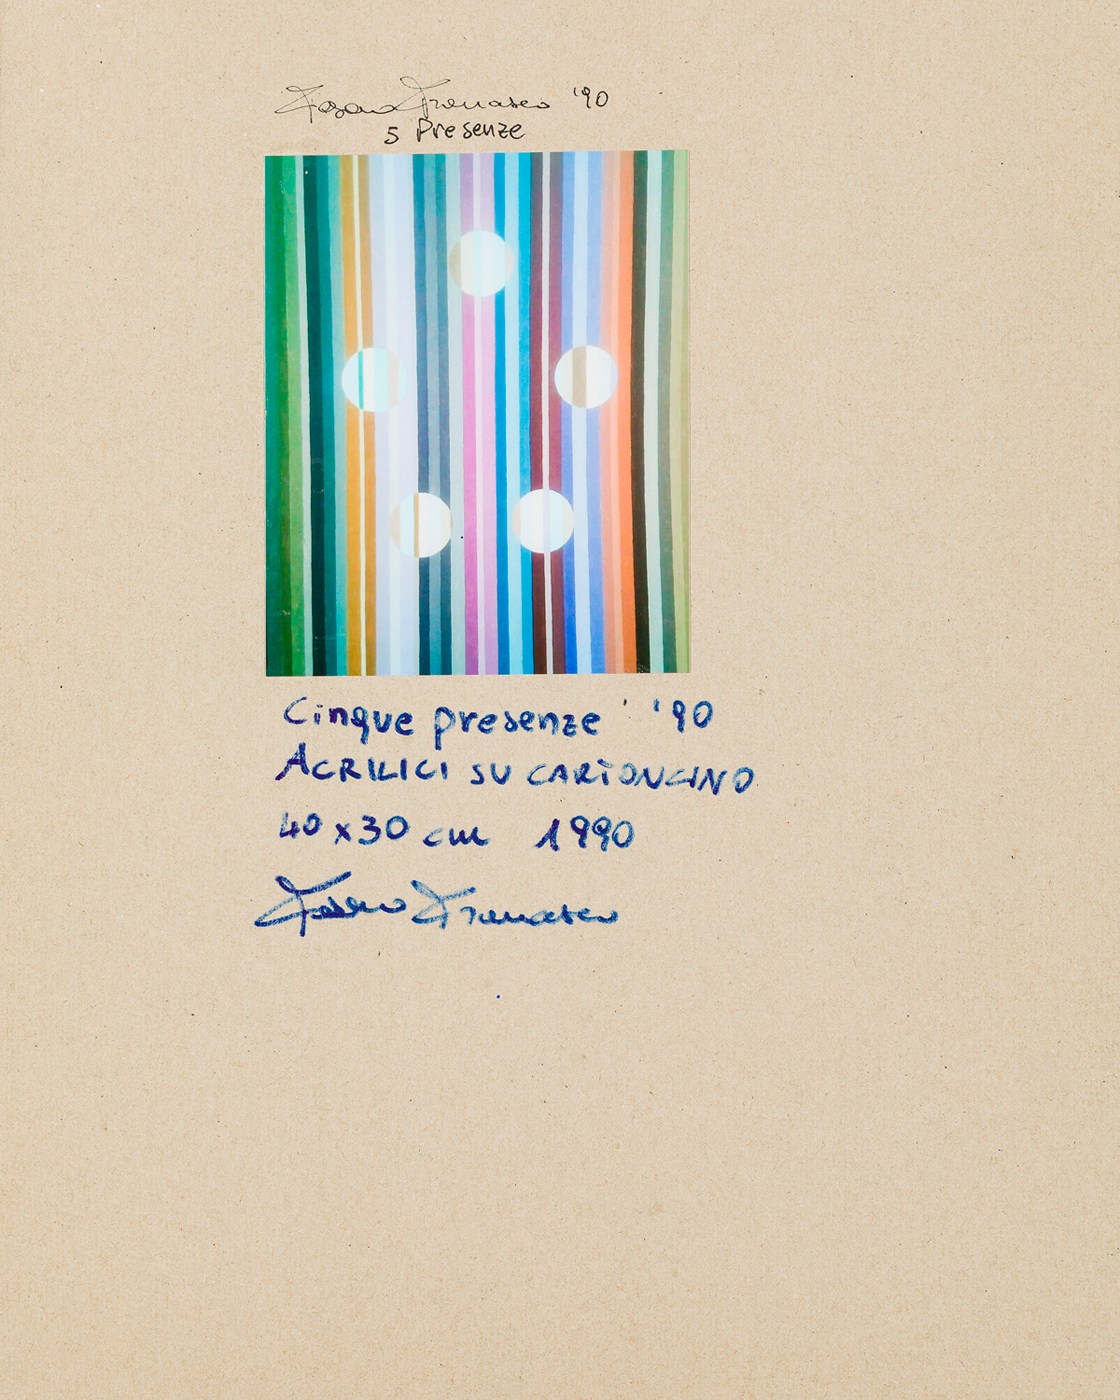 '90
5 Presenze
Cinque presenze '90
ACRILICI SU CARTONCINO
40 x 30 cm 1990